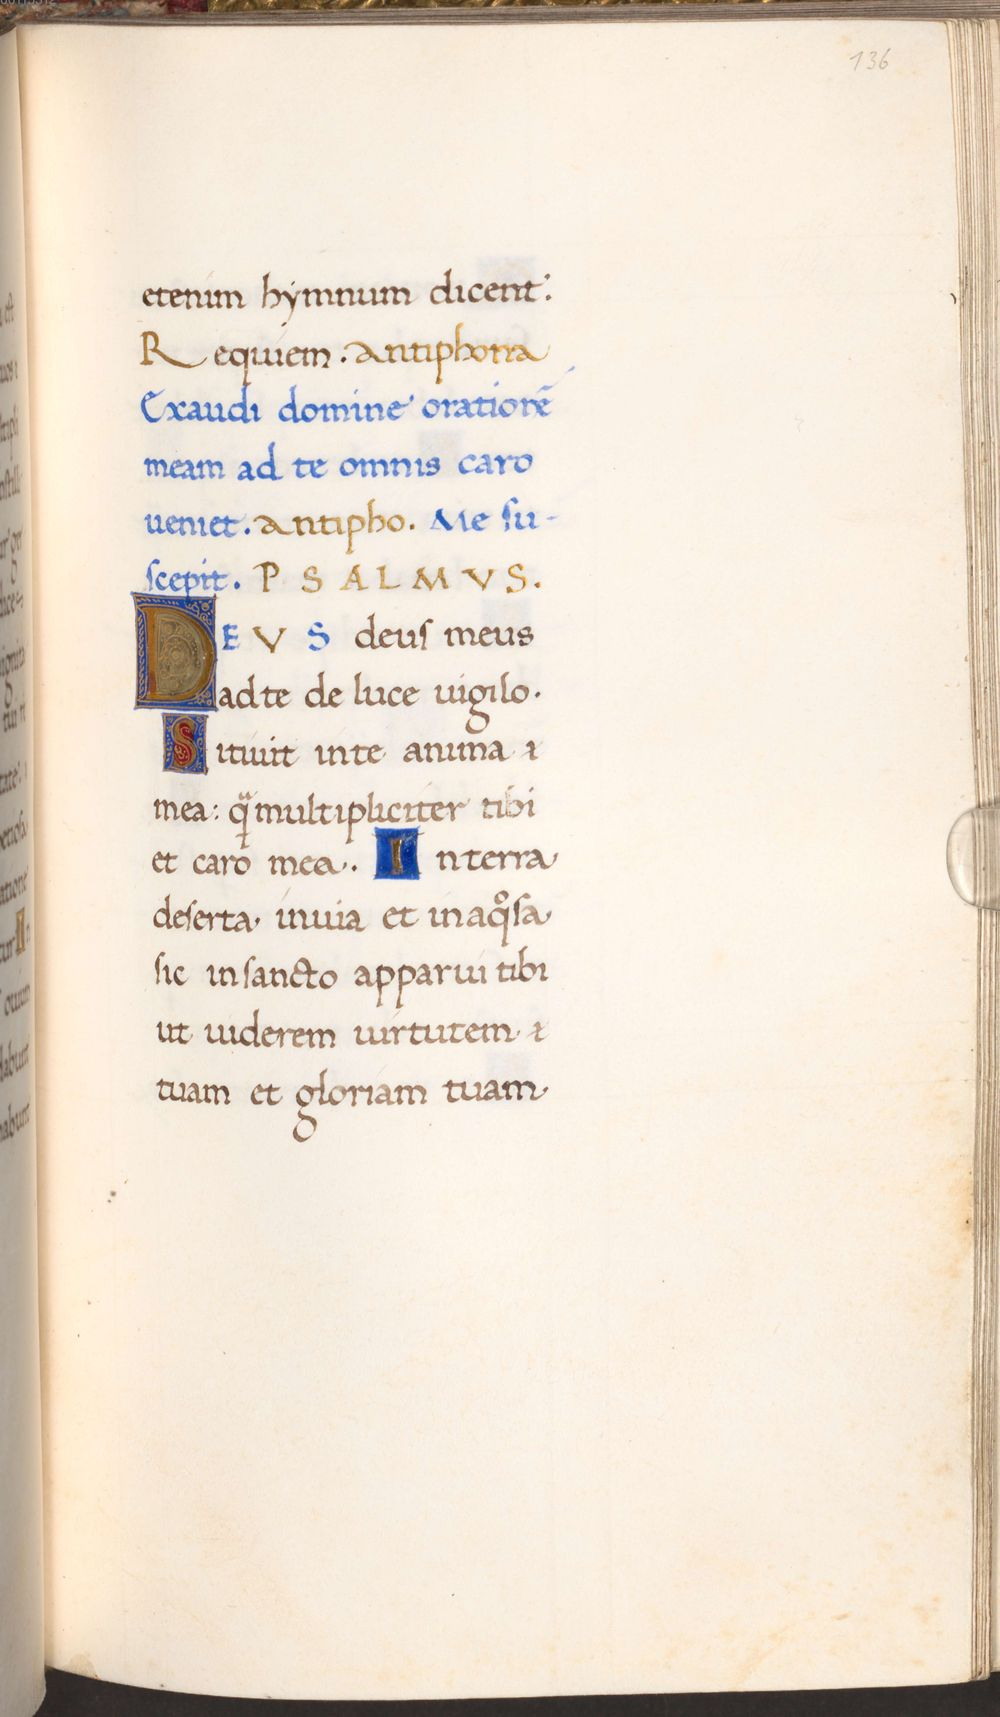 136
etenim hymnum dicent:
Requiem. Antiphona
Exaudi domine orationē
meam ad te omnis caro
ueniet. Antipho. Me su-
scepit. PSALMVS.
DEVS deus meus
adte de luce uigilo.
Sitiuit inte anima
mea: qᷓmultipliciter tibi
et caro mea. . Interra
deserta inuia et inaqͦsa
sic insancto apparui tibi
ut uiderem uirtutem
tuam et gloriam tuam